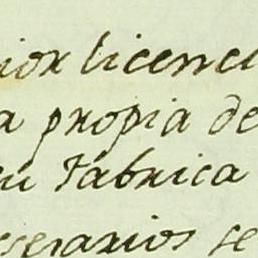 ior licenci
a propia de
su Fabrica
cesarios se